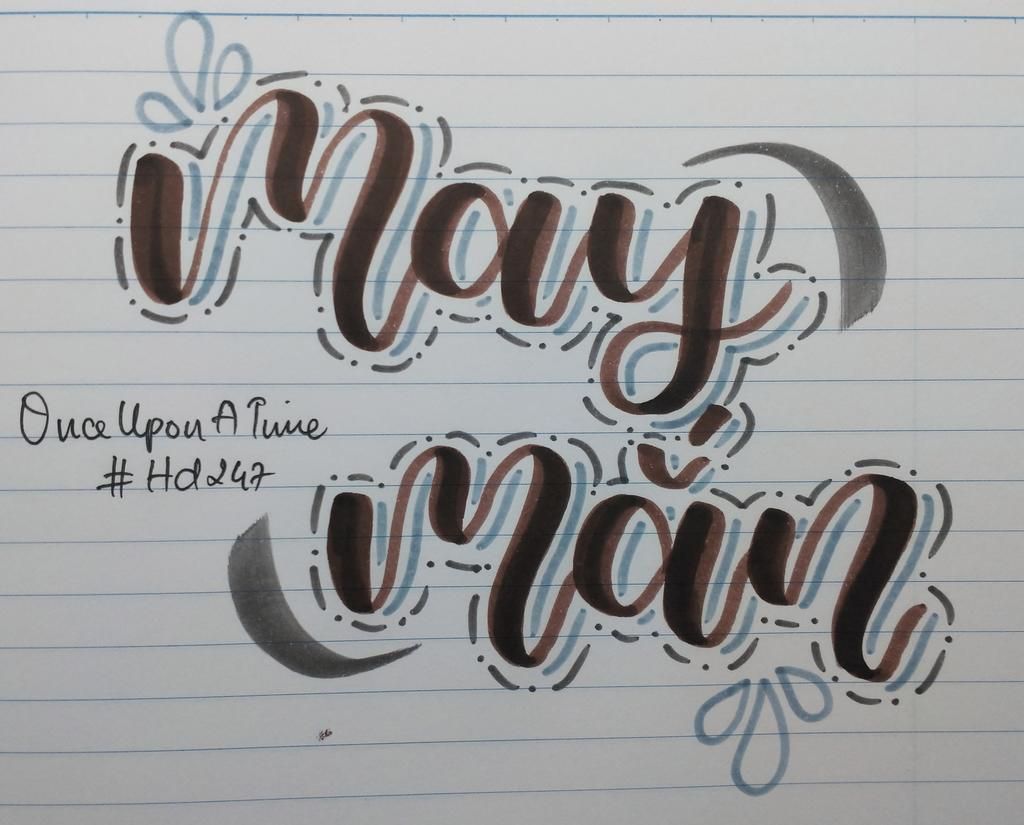 May
Once Upon A Time
#Hd247
mắn